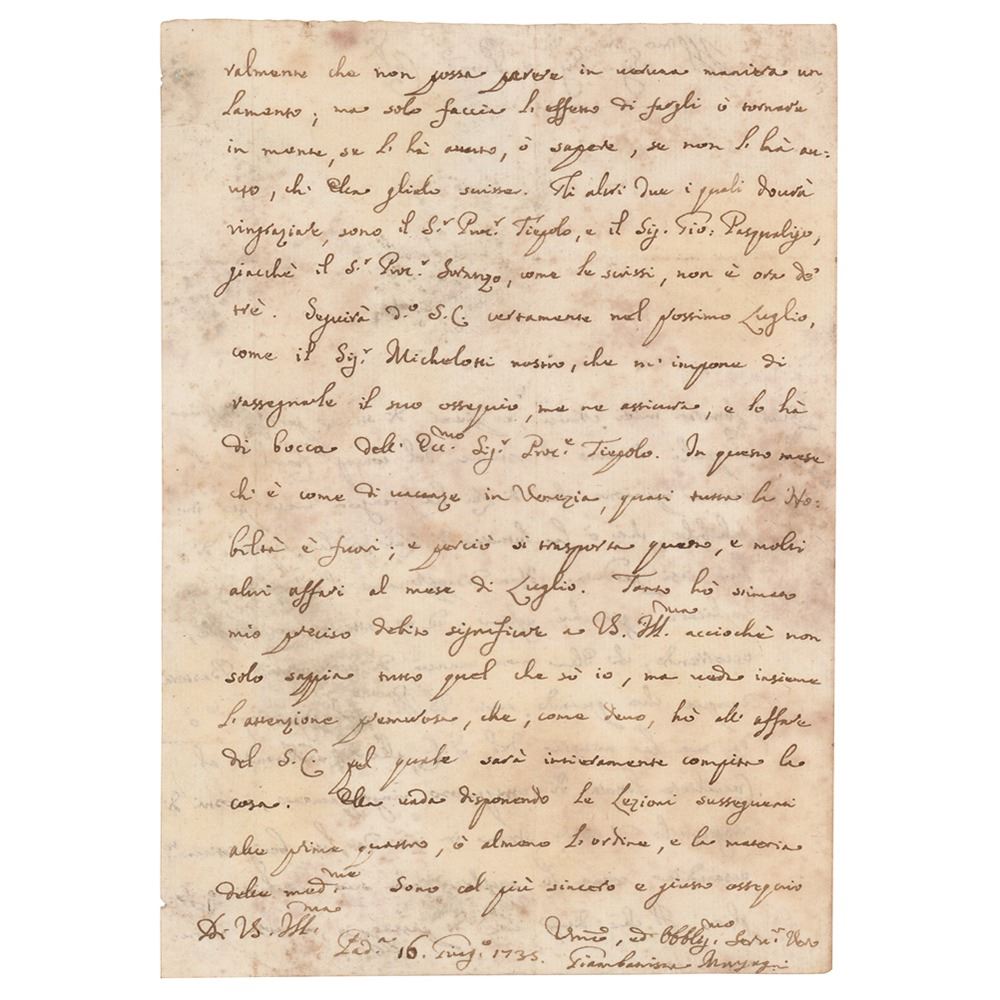 ralmente che non possa parere in veruna maniera un
lamento; ma solo faccia l'effetto di fargli ò tornare
in mente, se l'hà avuto, ò sapere, se non l'hà au:
uto, ch'Ella glielo scrisse. Gli altri due i quali dovrà
ringraziare, sono il S.r Proc.r Tiepolo, e il Sig. Gio: Pasqualigo,
giacchè il S.r Proc.r Soranzo, come le scrissi, non è ora de'
trè. Seguirà d.o S.C. certamente nel prossimo Luglio,
come il Sig.r Michelotti nostro, che m'impone di
rassegnarle il suo ossequio, me ne assicura, e lo hà
di bocca dell'Ecc.mo Sig.r Proc.r Tiepolo. In questo mese
ch'è come di vacanze in Venezia, quasi tutta la No:
biltà è fuori; e perciò si trasporta questo, e molti
altri affari al mese di Luglio. Tanto hò stimato
mio preciso debito significare a VS. Ill.ma acciochè non
solo sappia tutto quel che sò io, ma veda insieme
l'attenzione premurosa, che, come devo, hò all'affare
del S.C. pel quale sarà intieramente compita la
cosa. Ella vada disponendo le Lezioni susseguenti
alle prime quattro, ò almeno l'ordine, e la materia
delle med.me Sono col più sincero e giusto ossequio
Di VS. Ill.ma
Pad.a 16. Giug.o 1735.
Um̃o, ed Obblig.mo Serv.r Vero
Giambatista Morgagni